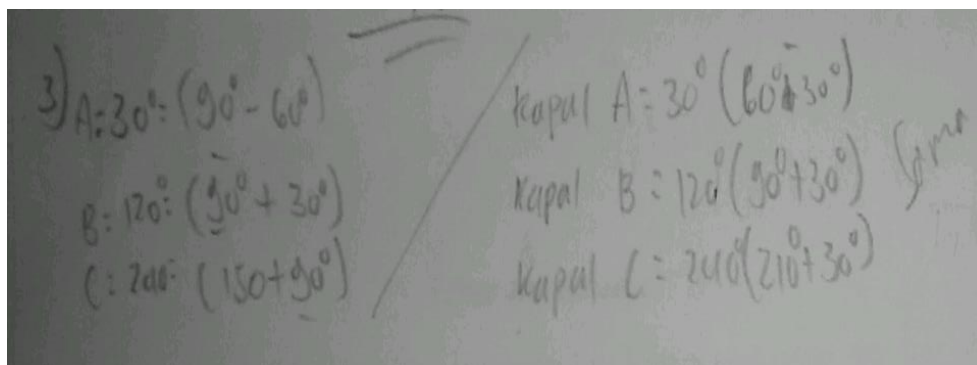 3) A = 30° = (90° - 60°)
B = 120° = (90° + 30°)
C = 240° = (150 + 90°)
Kapal A = 30° (60° 30°)
Kapal B = 120° (90° + 30°)
Kapal C = 240° (210° + 30°)